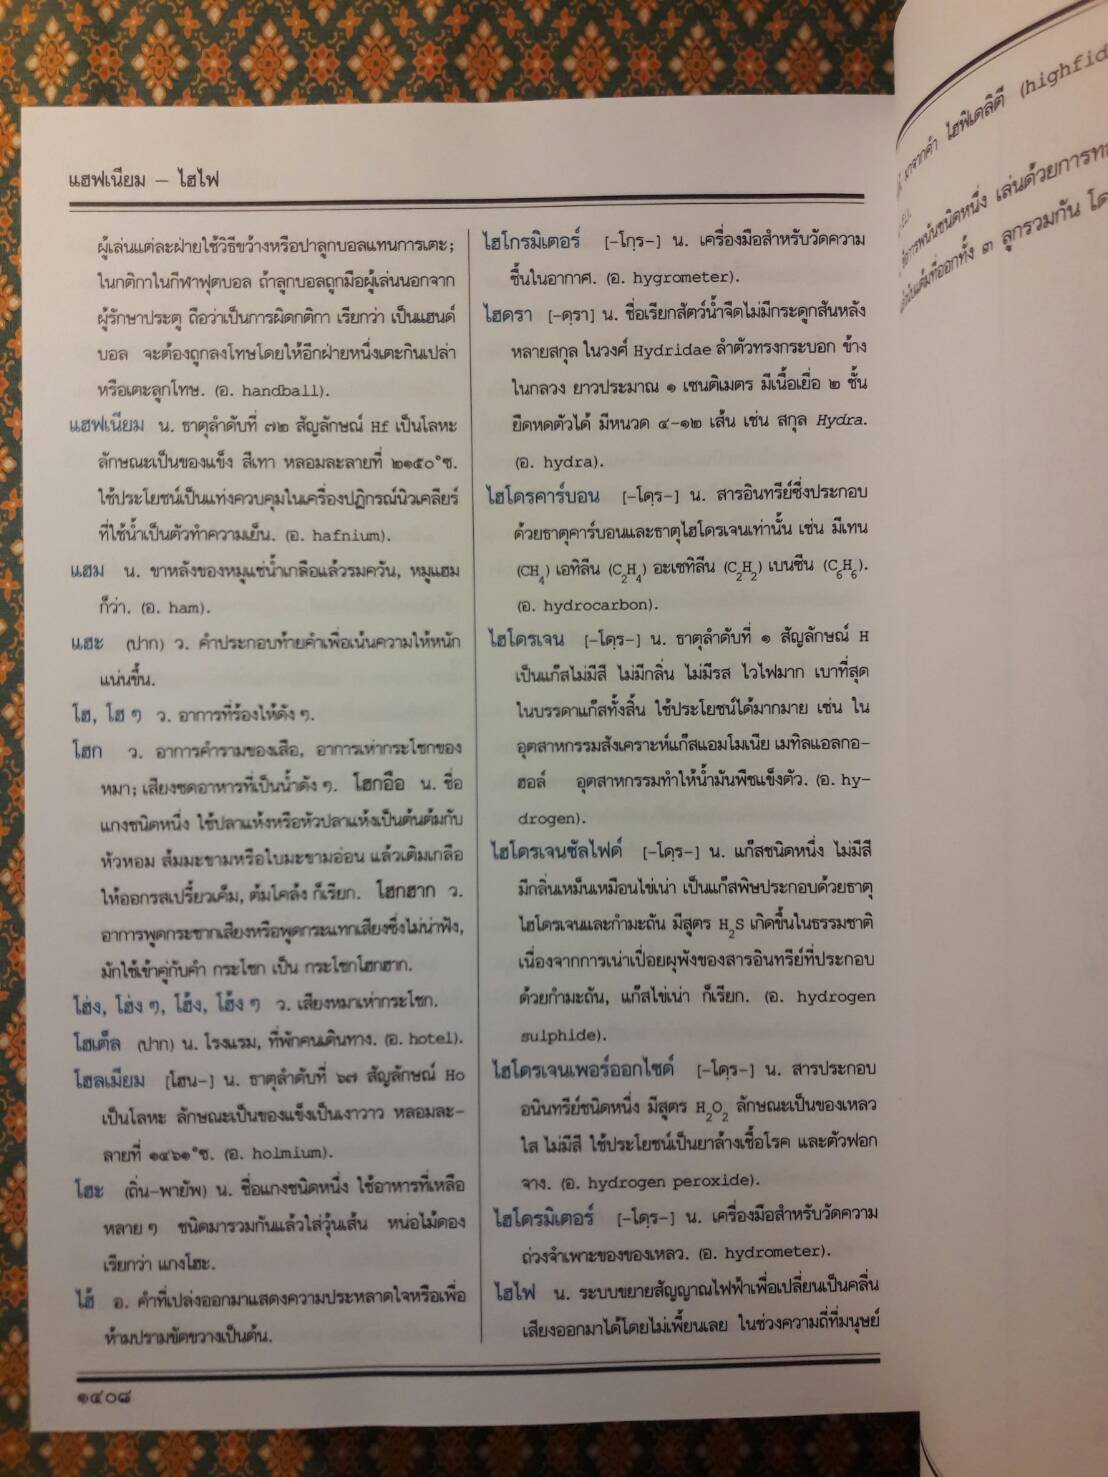 แฮฟเนียม – ไฮไฟ
ผู้เล่นแต่ละฝ่ายใช้วิธีขว้างหรือปาลูกบอลแทนการเตะ;
ในกติกาในกีฬาฟุตบอล ถ้าลูกบอลถูกมือผู้เล่นนอกจาก
ผู้รักษาประตู ถือว่าเป็นการผิดกติกา เรียกว่า เป็นแฮนด์
บอล จะต้องถูกลงโทษโดยให้อีกฝ่ายหนึ่งเตะกินเปล่า
หรือเตะลูกโทษ. (อ. handball).
แฮฟเนียม น. ธาตุลำดับที่ ๗๒ สัญลักษณ์ Hf เป็นโลหะ
ลักษณะเป็นของแข็ง สีเทา หลอมละลายที่ ๒๑๕๐°ซ.
ใช้ประโยชน์เป็นแท่งควบคุมในเครื่องปฏิกรณ์นิวเคลียร์
ที่ใช้น้ำเป็นตัวทำความเย็น. (อ. hafnium).
แฮม น. ขาหลังของหมูแช่น้ำเกลือแล้วรมควัน, หมูแฮม
ก็ว่า. (อ. ham).
แฮะ (ปาก) ว. คำประกอบท้ายคำเพื่อเน้นความให้หนัก
แน่นขึ้น.
โฮ, โฮ ๆ ว. อาการที่ร้องไห้ดัง ๆ.
โฮก ว. อาการคำรามของเสือ, อาการเห่ากระโชกของ
หมา; เสียงซดอาหารที่เป็นน้ำดัง ๆ. โฮกอือ น. ชื่อ
แกงชนิดหนึ่ง ใช้ปลาแห้งหรือหัวปลาแห้งเป็นต้นต้มกับ
หัวหอม ส้มมะขามหรือใบมะขามอ่อน แล้วเติมเกลือ
ให้ออกรสเปรี้ยวเค็ม, ต้มโคล้ง ก็เรียก. โฮกฮาก ว.
อาการพูดกระชากเสียงหรือพูดกระแทกเสียงซึ่งไม่น่าฟัง,
มักใช้เข้าคู่กับคำ กระโชก เป็น กระโชกโฮกฮาก.
โฮ่ง, โฮ่ง ๆ, โฮ้ง, โฮ้ง ๆ ว. เสียงหมาเห่ากระโชก.
โฮเต็ล (ปาก) น. โรงแรม, ที่พักคนเดินทาง. (อ. hotel).
โฮลเมียม [โฮน–] น. ธาตุลำดับที่ ๖๗ สัญลักษณ์ Ho
เป็นโลหะ ลักษณะเป็นของแข็งเป็นเงาวาว หลอมละ–
ลายที่ ๑๔๖๑°ซ. (อ. holmium).
โฮะ (ถิ่น–พายัพ) น. ชื่อแกงชนิดหนึ่ง ใช้อาหารที่เหลือ
หลาย ๆ ชนิดมารวมกันแล้วใส่วุ้นเส้น หน่อไม้ดอง
เรียกว่า แกงโฮะ.
ไฮ้ อ. คำที่เปล่งออกมาแสดงความประหลาดใจหรือเพื่อ
ห้ามปรามขัดขวางเป็นต้น.
ไฮโกรมิเตอร์ [–โกฺร–] น. เครื่องมือสำหรับวัดความ
ชื้นในอากาศ. (อ. hygrometer).
ไฮดรา [–ดฺรา] น. ชื่อเรียกสัตว์น้ำจืดไม่มีกระดูกสันหลัง
หลายสกุล ในวงศ์ Hydridae ลำตัวทรงกระบอก ข้าง
ในกลวง ยาวประมาณ ๑ เซนติเมตร มีเนื้อเยื่อ ๒ ชั้น
ยืดหดตัวได้ มีหนวด ๔–๑๒ เส้น เช่น สกุล Hydra.
(อ. hydra).
ไฮโดรคาร์บอน [–โดฺร–] น. สารอินทรีย์ซึ่งประกอบ
ด้วยธาตุคาร์บอนและธาตุไฮโดรเจนเท่านั้น เช่น มีเทน
(CH₄) เอทิลีน (C₂H₄) อะเซทิลีน (C₂H₂) เบนซีน (C₆H₆).
(อ. hydrocarbon).
ไฮโดรเจน [–โดฺร–] น. ธาตุลำดับที่ ๑ สัญลักษณ์ H
เป็นแก๊สไม่มีสี ไม่มีกลิ่น ไม่มีรส ไวไฟมาก เบาที่สุด
ในบรรดาแก๊สทั้งสิ้น ใช้ประโยชน์ได้มากมาย เช่น ใน
อุตสาหกรรมสังเคราะห์แก๊สแอมโมเนีย เมทิลแอลกอ–
ฮอล์ อุตสาหกรรมทำให้น้ำมันพืชแข็งตัว. (อ. hy–
drogen).
ไฮโดรเจนซัลไฟด์ [–โดฺร–] น. แก๊สชนิดหนึ่ง ไม่มีสี
มีกลิ่นเหม็นเหมือนไข่เน่า เป็นแก๊สพิษประกอบด้วยธาตุ
ไฮโดรเจนและกำมะถัน มีสูตร H₂S เกิดขึ้นในธรรมชาติ
เนื่องจากการเน่าเปื่อยผุพังของสารอินทรีย์ที่ประกอบ
ด้วยกำมะถัน, แก๊สไข่เน่า ก็เรียก. (อ. hydrogen
sulphide).
ไฮโดรเจนเพอร์ออกไซด์ [–โดฺร–] น. สารประกอบ
อนินทรีย์ชนิดหนึ่ง มีสูตร H₂O₂ ลักษณะเป็นของเหลว
ใส ไม่มีสี ใช้ประโยชน์เป็นยาล้างเชื้อโรค และตัวฟอก
จาง. (อ. hydrogen peroxide).
ไฮโดรมิเตอร์ [–โดฺร–] น. เครื่องมือสำหรับวัดความ
ถ่วงจำเพาะของของเหลว. (อ. hydrometer).
ไฮไฟ น. ระบบขยายสัญญาณไฟฟ้าเพื่อเปลี่ยนเป็นคลื่น
เสียงออกมาได้โดยไม่เพี้ยนเลย ในช่วงความถี่ที่มนุษย์
๑๔๐๘
มาจากคำ ไฮฟิเดลิตี (highfid
การพนันชนิดหนึ่ง เล่นด้วยการ
แต้มที่ออกทั้ง ๓ ลูกรวมกัน